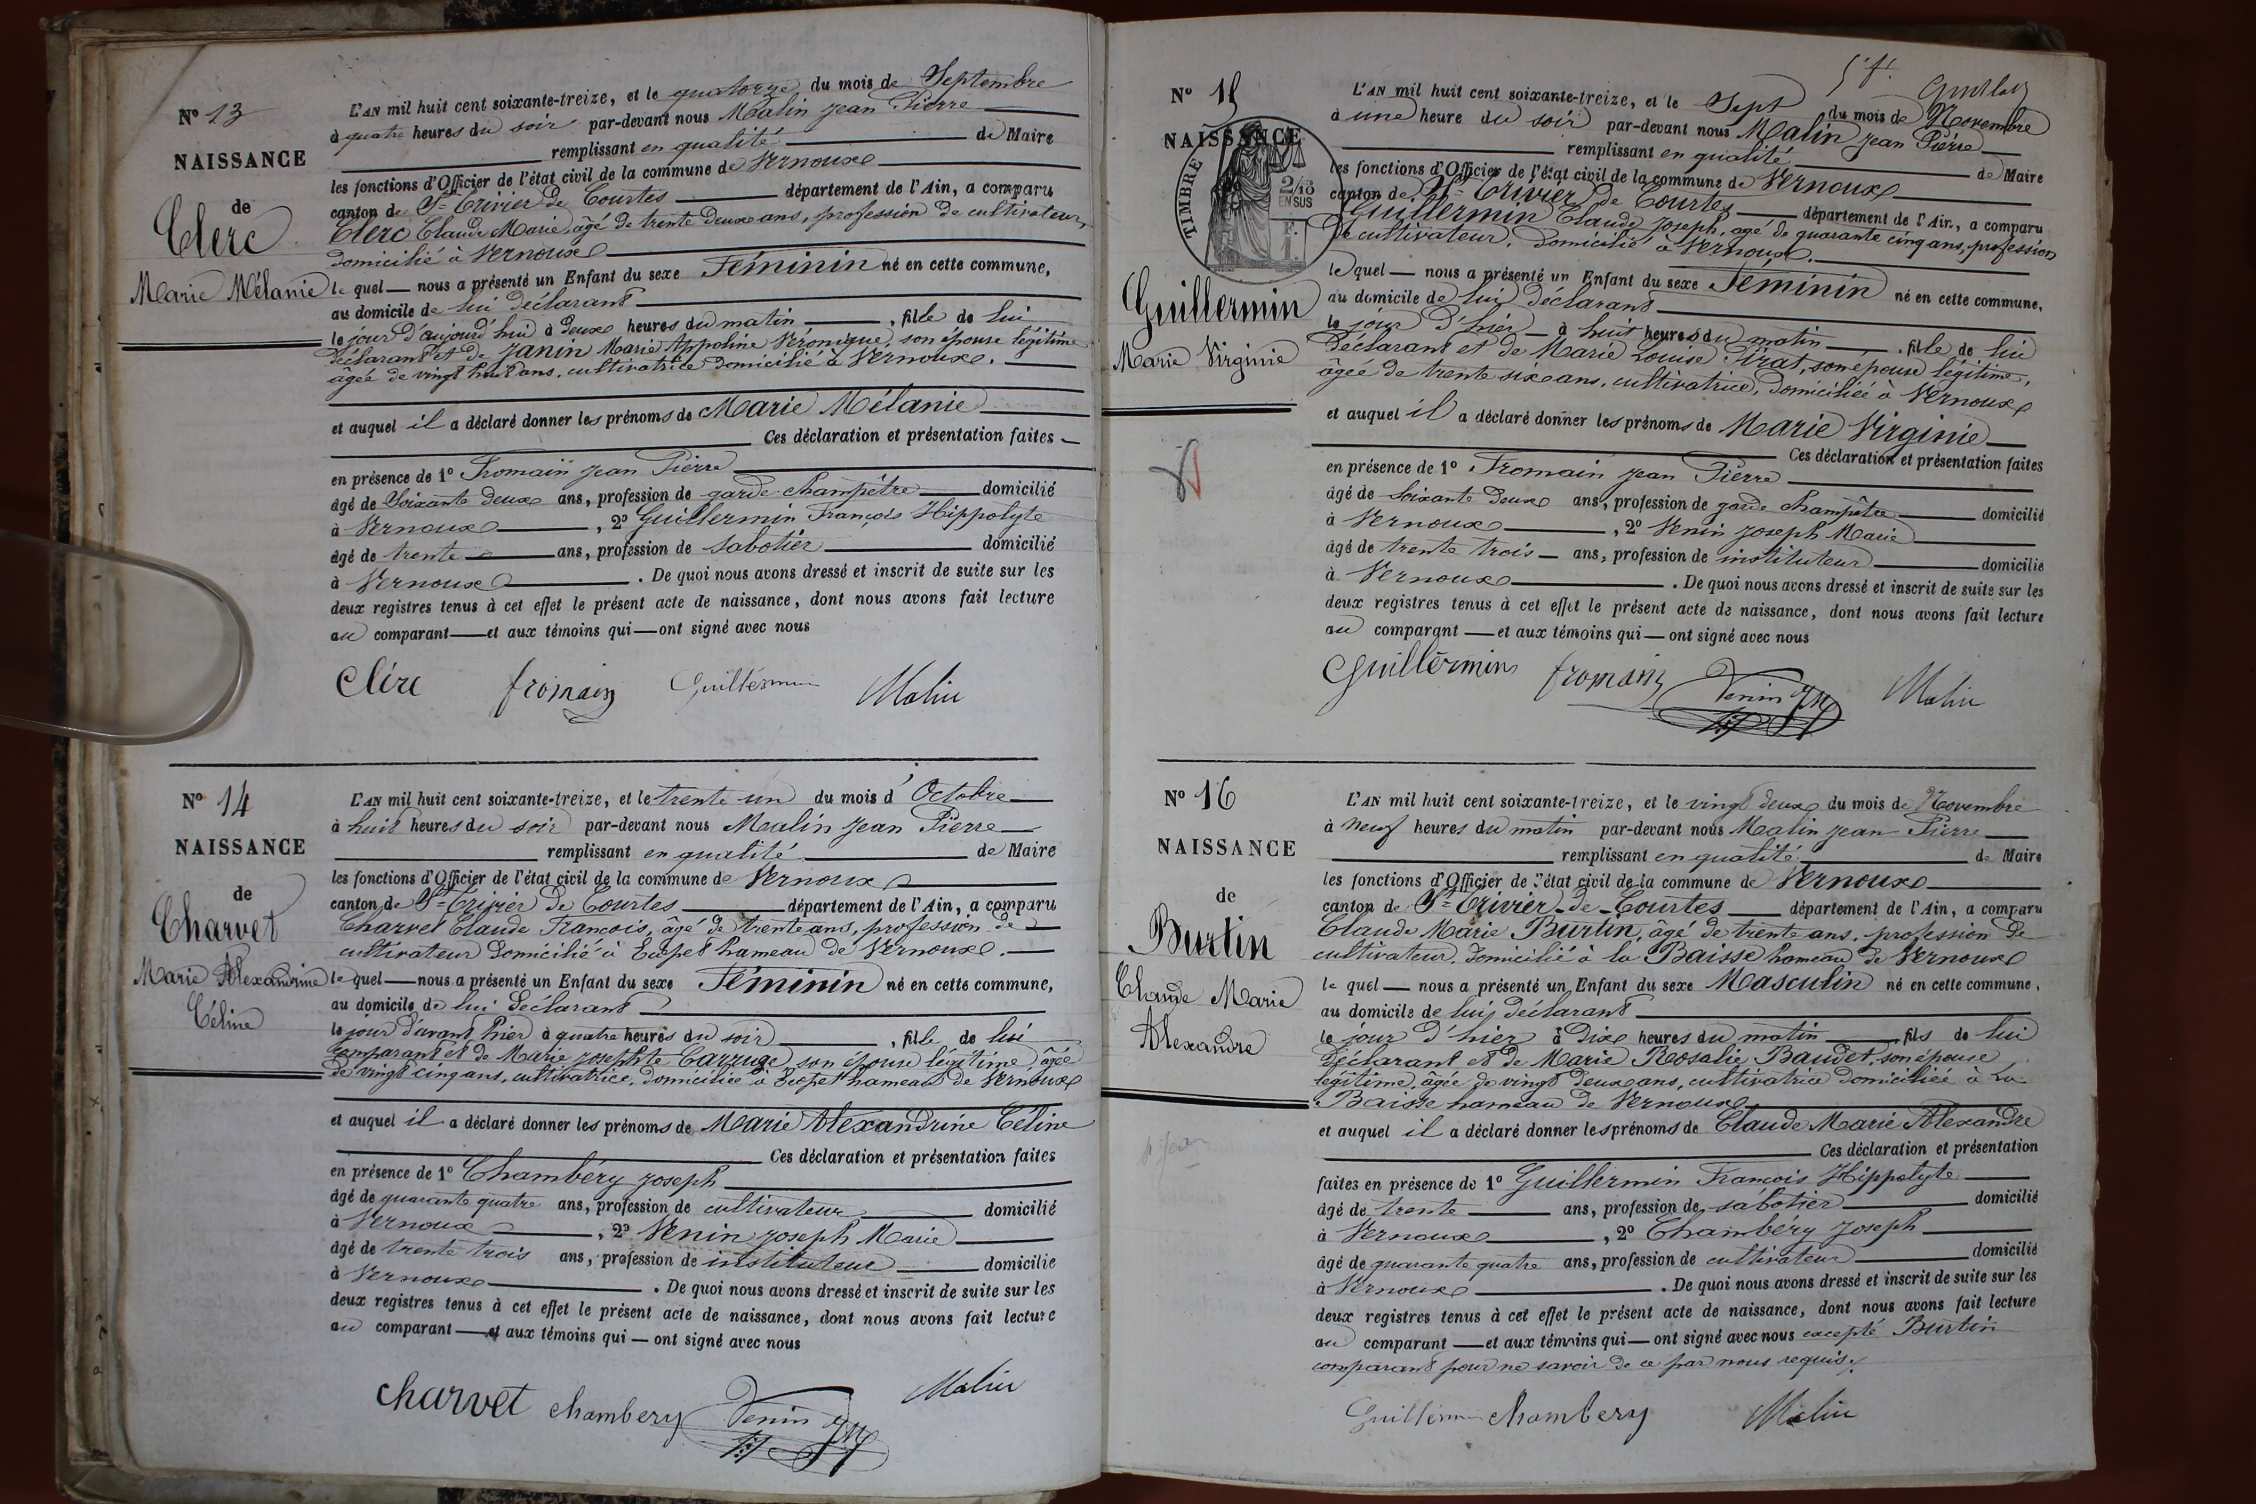 Nº 13
NAISSANCE
de
Clerc
Marie Mélanie
L'AN mil huit cent soixante-treize, et le quatorze du mois de Septembre
à quatre heures du soir par-devant nous Malin Jean Pierre
remplissant en qualité de Maire
les fonctions d'Officier de l'état civil de la commune de Vernoux
canton de St Trivier de Courtes département de l'Ain, a comparu
Clerc Claude Marie, âgé de trente deux ans, profession de cultivateur,
domicilié à Vernoux
le quel nous a présenté un Enfant du sexe Féminin né en cette commune,
au domicile de lui déclarant
le jour d'aujourd'hui à deux heures du matin, fille de lui
déclarant et de Janin Marie Appoline Véronique, son épouse légitime
âgée de vingt huit ans, cultivatrice domicilié à Vernoux.
et auquel il a déclaré donner les prénoms de Marie Mélanie
Ces déclaration et présentation faites
en présence de 1º Fromain Jean Pierre
âgé de Soixante deux ans, profession de garde-champêtre domicilié
à Vernoux, 2º Guillermin François Hippolyte
âgé de trente ans, profession de sabotier domicilié
à Vernoux. De quoi nous avons dressé et inscrit de suite sur les
deux registres tenus à cet effet le présent acte de naissance, dont nous avons fait lecture
au comparant et aux témoins qui ont signé avec nous
Clerc fromain Guillermin Malin
Nº 14
NAISSANCE
de
Charvet
Marie Alexandrine
Céline
L'AN mil huit cent soixante-treize, et le trente un du mois d'Octobre
à huit heures du soir par-devant nous Malin Jean Pierre
remplissant en qualité de Maire
les fonctions d'Officier de l'état civil de la commune de Vernoux
canton de St Trivier de Courtes département de l'Ain, a comparu
Charvet Claude François, âgé de trente ans, profession de
cultivateur domicilié à hameau de Vernoux.
le quel nous a présenté un Enfant du sexe Féminin né en cette commune,
au domicile de lui déclarant
le jour d'avant hier à quatre heures du soir, fille de lui
comparant et de Marie Josephte Carruge, son épouse légitime, âgée
de vingt cinq ans, cultivatrice, domiciliée à hameau de Vernoux
et auquel il a déclaré donner les prénoms de Marie Alexandrine Céline
Ces déclaration et présentation faites
en présence de 1º Chambéry Joseph
âgé de quarante quatre ans, profession de cultivateur domicilié
à Vernoux, 2º Venin Joseph Marie
âgé de trente trois ans, profession de instituteur domicilié
à Vernoux. De quoi nous avons dressé et inscrit de suite sur les
deux registres tenus à cet effet le présent acte de naissance, dont nous avons fait lecture
au comparant et aux témoins qui ont signé avec nous
Charvet Chambery Venin JM Malin
Nº 15
NAISSANCE
TIMBRE
2/10
EN SUS
F.
1
Guillermin
Marie Virginie
L'AN mil huit cent soixante-treize, et le Sept du mois de Novembre
à une heure du soir par-devant nous Malin Jean Pierre
remplissant en qualité de Maire
les fonctions d'Officier de l'état civil de la commune de Vernoux
canton de St Trivier de Courtes département de l'Ain, a comparu
Guillermin Claude Joseph, âgé de quarante cinq ans, profession
de cultivateur, domicilié à Vernoux.
le quel nous a présenté un Enfant du sexe Féminin né en cette commune,
au domicile de lui déclarant
le jour d'hier à huit heures du matin, fille de lui
déclarant et de Marie Louise Pirat, son épouse légitime,
âgée de trente six ans, cultivatrice, domiciliée à Vernoux
et auquel il a déclaré donner les prénoms de Marie Virginie
Ces déclaration et présentation faites
en présence de 1º Fromain Jean Pierre
âgé de soixante deux ans, profession de garde champêtre domicilié
à Vernoux, 2º Venin Joseph Marie
âgé de trente trois ans, profession de instituteur domicilié
à Vernoux. De quoi nous avons dressé et inscrit de suite sur les
deux registres tenus à cet effet le présent acte de naissance, dont nous avons fait lecture
au comparant et aux témoins qui ont signé avec nous
Guillermin fromain Venin JM Malin
Nº 16
NAISSANCE
de
Burtin
Claude Marie
Alexandre
L'AN mil huit cent soixante-treize, et le vingt deux du mois de Novembre
à neuf heures du matin par-devant nous Malin Jean Pierre
remplissant en qualité de Maire
les fonctions d'Officier de l'état civil de la commune de Vernoux
canton de St Trivier-de-Courtes département de l'Ain, a comparu
Claude Marie Burtin, âgé de trente ans, profession de
cultivateur, domicilié à la Baisse hameau de Vernoux
le quel nous a présenté un Enfant du sexe Masculin né en cette commune,
au domicile de lui déclarant
le jour d'hier à dix heures du matin, fils de lui
déclarant et de Marie Rosalie Baudet, son épouse
légitime, âgée de vingt deux ans, cultivatrice domiciliée à La
Baisse hameau de Vernoux
et auquel il a déclaré donner les prénoms de Claude Marie Alexandre
Ces déclaration et présentation
faites en présence de 1º Guillermin François Hippolyte
âgé de trente ans, profession de sabotier domicilié
à Vernoux, 2º Chambéry Joseph
âgé de quarante quatre ans, profession de cultivateur domicilié
à Vernoux. De quoi nous avons dressé et inscrit de suite sur les
deux registres tenus à cet effet le présent acte de naissance, dont nous avons fait lecture
au comparant et aux témoins qui ont signé avec nous excepté Burtin
comparant pour ne savoir de ce par nous requis.
Guillermin Chambery Malin